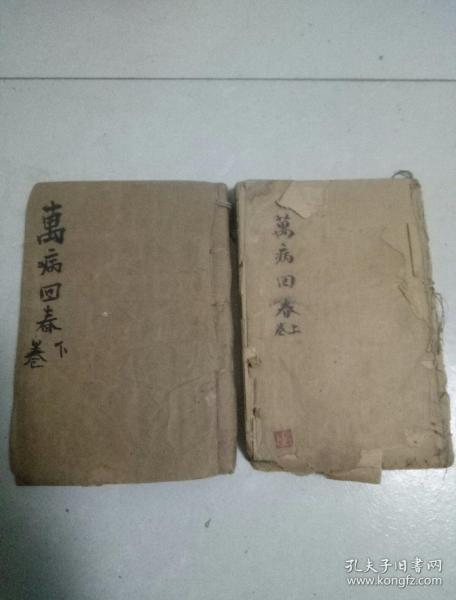 萬病回春
下卷
萬病回春
上卷
孔夫子旧书网
www.kongfz.com